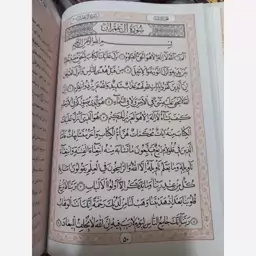 سُورَةُ آلِ عِمْرَانَ
بِسْمِ اللَّهِ الرَّحْمَٰنِ الرَّحِيمِ
الم اللَّهُ لَا إِلَٰهَ إِلَّا هُوَ الْحَيُّ الْقَيُّومُ نَزَّلَ عَلَيْكَ الْكِتَابَ
بِالْحَقِّ مُصَدِّقًا لِمَا بَيْنَ يَدَيْهِ وَأَنْزَلَ التَّوْرَاةَ وَالْإِنْجِيلَ
مِنْ قَبْلُ هُدًى لِلنَّاسِ وَأَنْزَلَ الْفُرْقَانَ إِنَّ الَّذِينَ كَفَرُوا
بِآيَاتِ اللَّهِ لَهُمْ عَذَابٌ شَدِيدٌ وَاللَّهُ عَزِيزٌ ذُو انْتِقَامٍ إِنَّ اللَّهَ
لَا يَخْفَىٰ عَلَيْهِ شَيْءٌ فِي الْأَرْضِ وَلَا فِي السَّمَاءِ هُوَ الَّذِي يُصَوِّرُكُمْ
فِي الْأَرْحَامِ كَيْفَ يَشَاءُ لَا إِلَٰهَ إِلَّا هُوَ الْعَزِيزُ الْحَكِيمُ هُوَ الَّذِي أَنْزَلَ عَلَيْكَ
الْكِتَابَ مِنْهُ آيَاتٌ مُحْكَمَاتٌ هُنَّ أُمُّ الْكِتَابِ وَأُخَرُ مُتَشَابِهَاتٌ فَأَمَّا
الَّذِينَ فِي قُلُوبِهِمْ زَيْغٌ فَيَتَّبِعُونَ مَا تَشَابَهَ مِنْهُ ابْتِغَاءَ الْفِتْنَةِ وَابْتِغَاءَ
تَأْوِيلِهِ وَمَا يَعْلَمُ تَأْوِيلَهُ إِلَّا اللَّهُ وَالرَّاسِخُونَ فِي الْعِلْمِ يَقُولُونَ آمَنَّا بِهِ
كُلٌّ مِنْ عِنْدِ رَبِّنَا وَمَا يَذَّكَّرُ إِلَّا أُولُو الْأَلْبَابِ رَبَّنَا لَا تُزِغْ
قُلُوبَنَا بَعْدَ إِذْ هَدَيْتَنَا وَهَبْ لَنَا مِنْ لَدُنْكَ رَحْمَةً إِنَّكَ أَنْتَ الْوَهَّابُ
رَبَّنَا إِنَّكَ جَامِعُ النَّاسِ لِيَوْمٍ لَا رَيْبَ فِيهِ إِنَّ اللَّهَ لَا يُخْلِفُ الْمِيعَادَ
٥٠